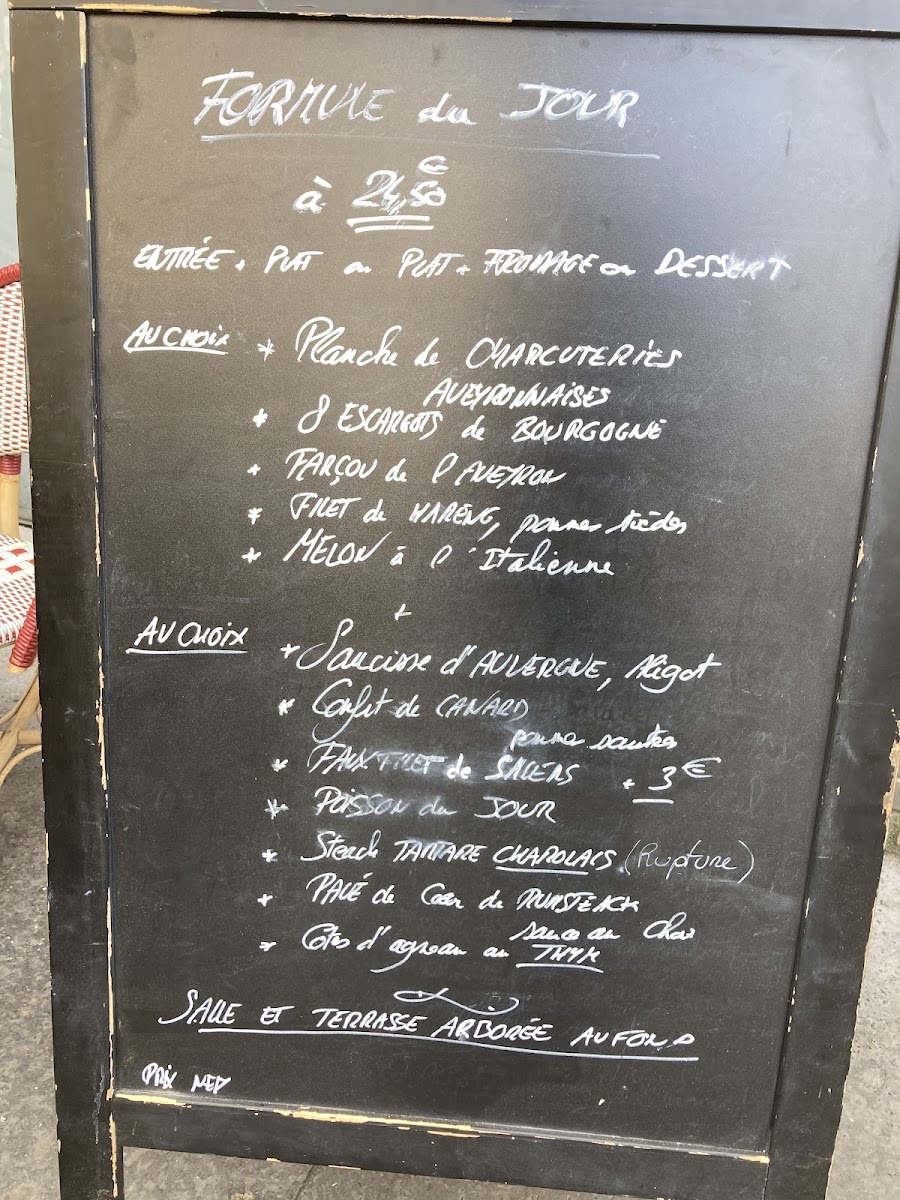 FORMULE du JOUR
à 24,50€
ENTRÉE + PLAT ou PLAT + FROMAGE ou DESSERT
AU CHOIX * Planche de CHARCUTERIES
AVEYRONNAISES
* 8 ESCARGOTS de BOURGOGNE
* FARÇOU de l'AVEYRON
* FILET de HARENG, pommes tièdes
* MELON à l'Italienne
+
AU CHOIX * Saucisse d'AUVERGNE, Aligot
* Confit de CANARD
pommes sautées
* FAUX FILET de SALERS + 3€
* POISSON du JOUR
* Steack TARTARE CHAROLAIS (Rupture)
* PAVÉ de Cœur de RUMSTEACK
sauce au choix
* Côtes d'agneau au THYM
SALLE ET TERRASSE ARBORÉE AU FOND
PRIX NET